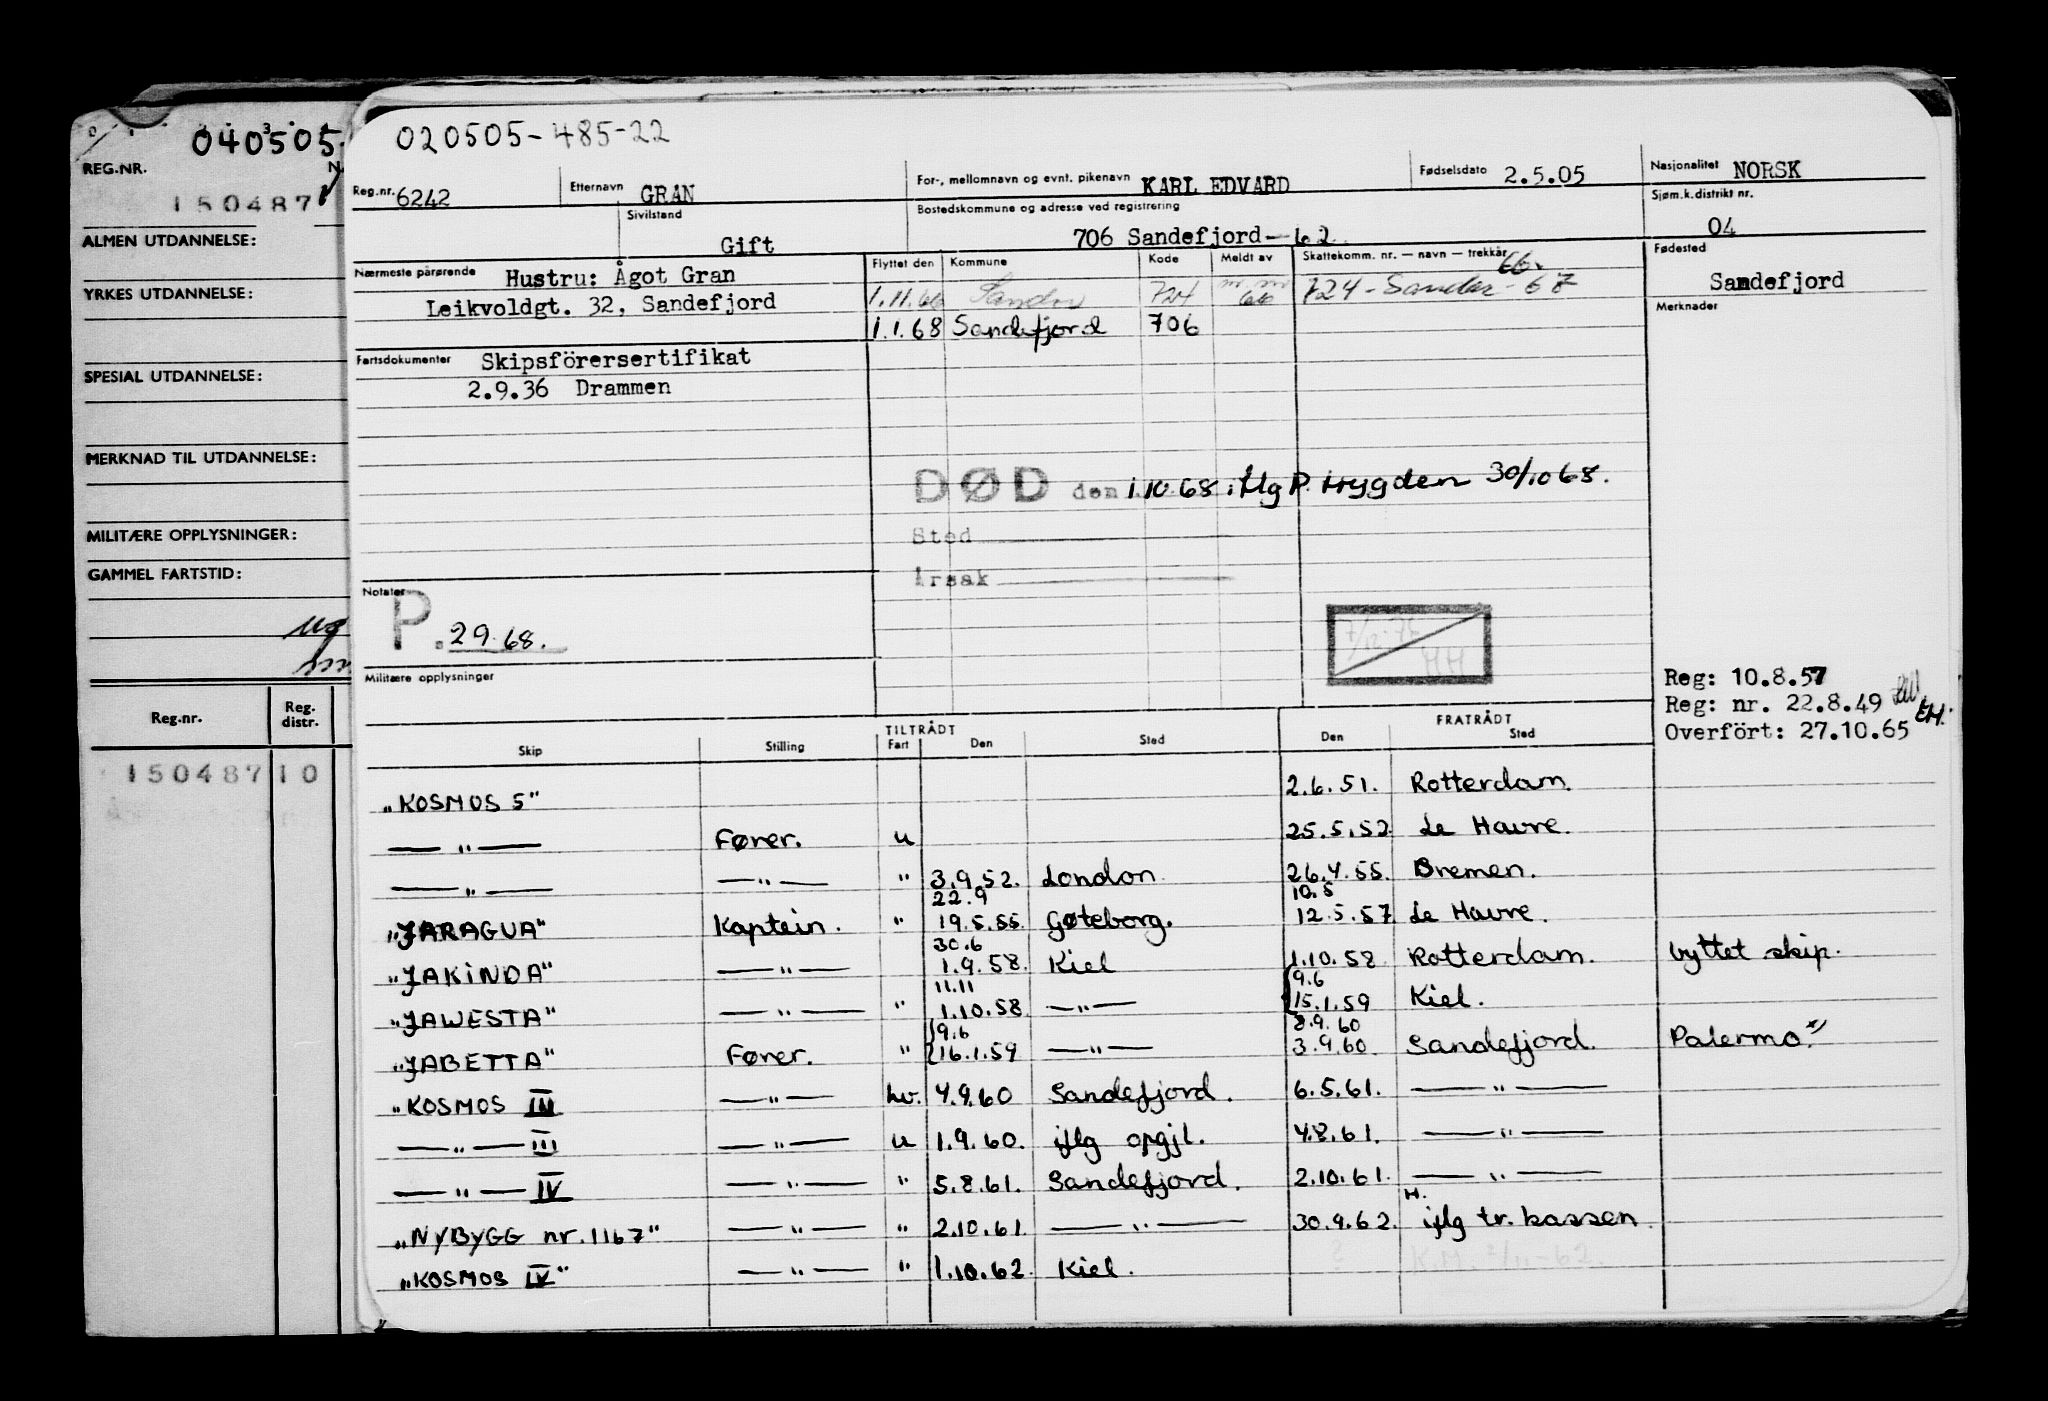 040505-
REG.NR.
150487
ALMEN UTDANNELSE:
YRKES UTDANNELSE:
SPESIAL UTDANNELSE:
MERKNAD TIL UTDANNELSE:
MILITÆRE OPPLYSNINGER:
GAMMEL FARTSTID:
Reg.nr. Reg. distr.
150487 10
020505-485-22
Reg.nr. 6242 Etternavn GRAN For-, mellomnavn og evnt. pikenavn KARL EDVARD Fødselsdato 2.5.05 Nasjonalitet NORSK
Sivilstand Gift Bostedskommune og adresse ved registrering 706 Sandefjord-62 Sjøm.k.distrikt nr. 04
Nærmeste pårørende Hustru: Ågot Gran
Leikvoldgt. 32, Sandefjord
Flyttet den Kommune Kode Meldt av Skattekomm. nr. — navn — trekkår 66.
1.11.66 Sandar 724 724-Sandar-67
1.1.68 Sandefjord 706
Fødested Sandefjord
Merknader
Fartsdokumenter Skipsförersertifikat
2.9.36 Drammen
DØD den 1.10.68 iflg P. trygden 30/10 68.
Sted
Årsak
Notater P. 29.68.
HH
Militære opplysninger
Reg: 10.8.57
Reg: nr. 22.8.49
Overfört: 27.10.65 EH.
TILTRÅDT FRATRÅDT
Skip Stilling Fart Den Sted Den Sted
„KOSMOS 5" 2.6.51. Rotterdam.
— " — Fører. u 25.5.52. Le Havre.
— " — — " — " 3.9.52. London 26.4.55. Bremen.
22.9 10.5
„JARAGUA" Kaptein. " 19.5.55. Gøteborg. 12.5.57 Le Havre.
30.6
„JAKINDA" — " — 1.9.58. Kiel 1.10.58 Rotterdam. byttet skip.
11.11 9.6
„JAWESTA" — " — " 1.10.58 — " — 15.1.59 Kiel.
9.6 8.9.60
„JABETTA" Fører. " 16.1.59 — " — 3.9.60. Sandefjord. Palermo?"
„KOSMOS III — " — hv. 4.9.60 Sandefjord. 6.5.61. — " —
— " — III — " — u 1.9.60. iflg opgjl. 4.8.61. — " —
— " — IV — " — " 5.8.61. Sandefjord. 2.10.61. — " —
„NYBYGG nr.1167" — " — " 2.10.61. — " — 30.9.62. H. iflg tr. kassen
„KOSMOS IV" — " — " 1.10.62 Kiel.